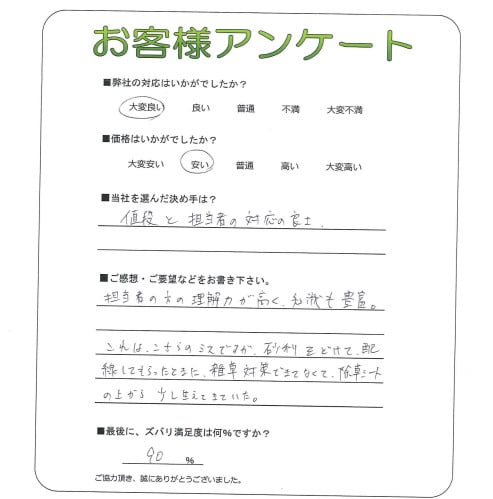 お客様アンケート
■弊社の対応はいかがでしたか?
大変良い 良い 普通 不満 大変不満
■価格はいかがでしたか?
大変安い 安い 普通 高い 大変高い
■当社を選んだ決め手は?
値段と担当者の対応の良さ.
■ご感想・ご要望などをお書き下さい。
担当者の方の理解力が高く、知識も豊富。
これは、こちらのミスですが、砂利をどけて、配
線してもらったときに、雑草対策できてなくて、除草シート
の上から少し生えてきていた。
■最後に、ズバリ満足度は何%ですか?
90 %
ご協力頂き、誠にありがとうございました。